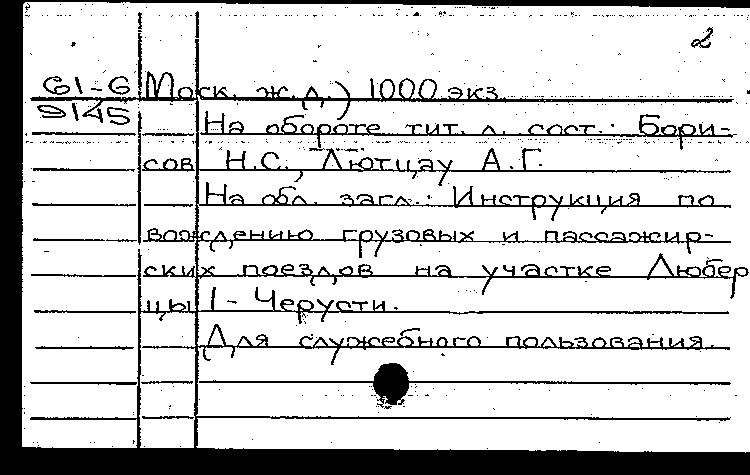 2
61-6 Моск. ж.д.) 1000 экз.
9145
На обороте тит. л. сост.: Бори-
сов Н.С., Лютцау А.Г.
На обл. загл.: Инструкция по
вождению грузовых и пассажир-
ских поездов на участке Любер
цы I - Черусти.
Для служебного пользования.